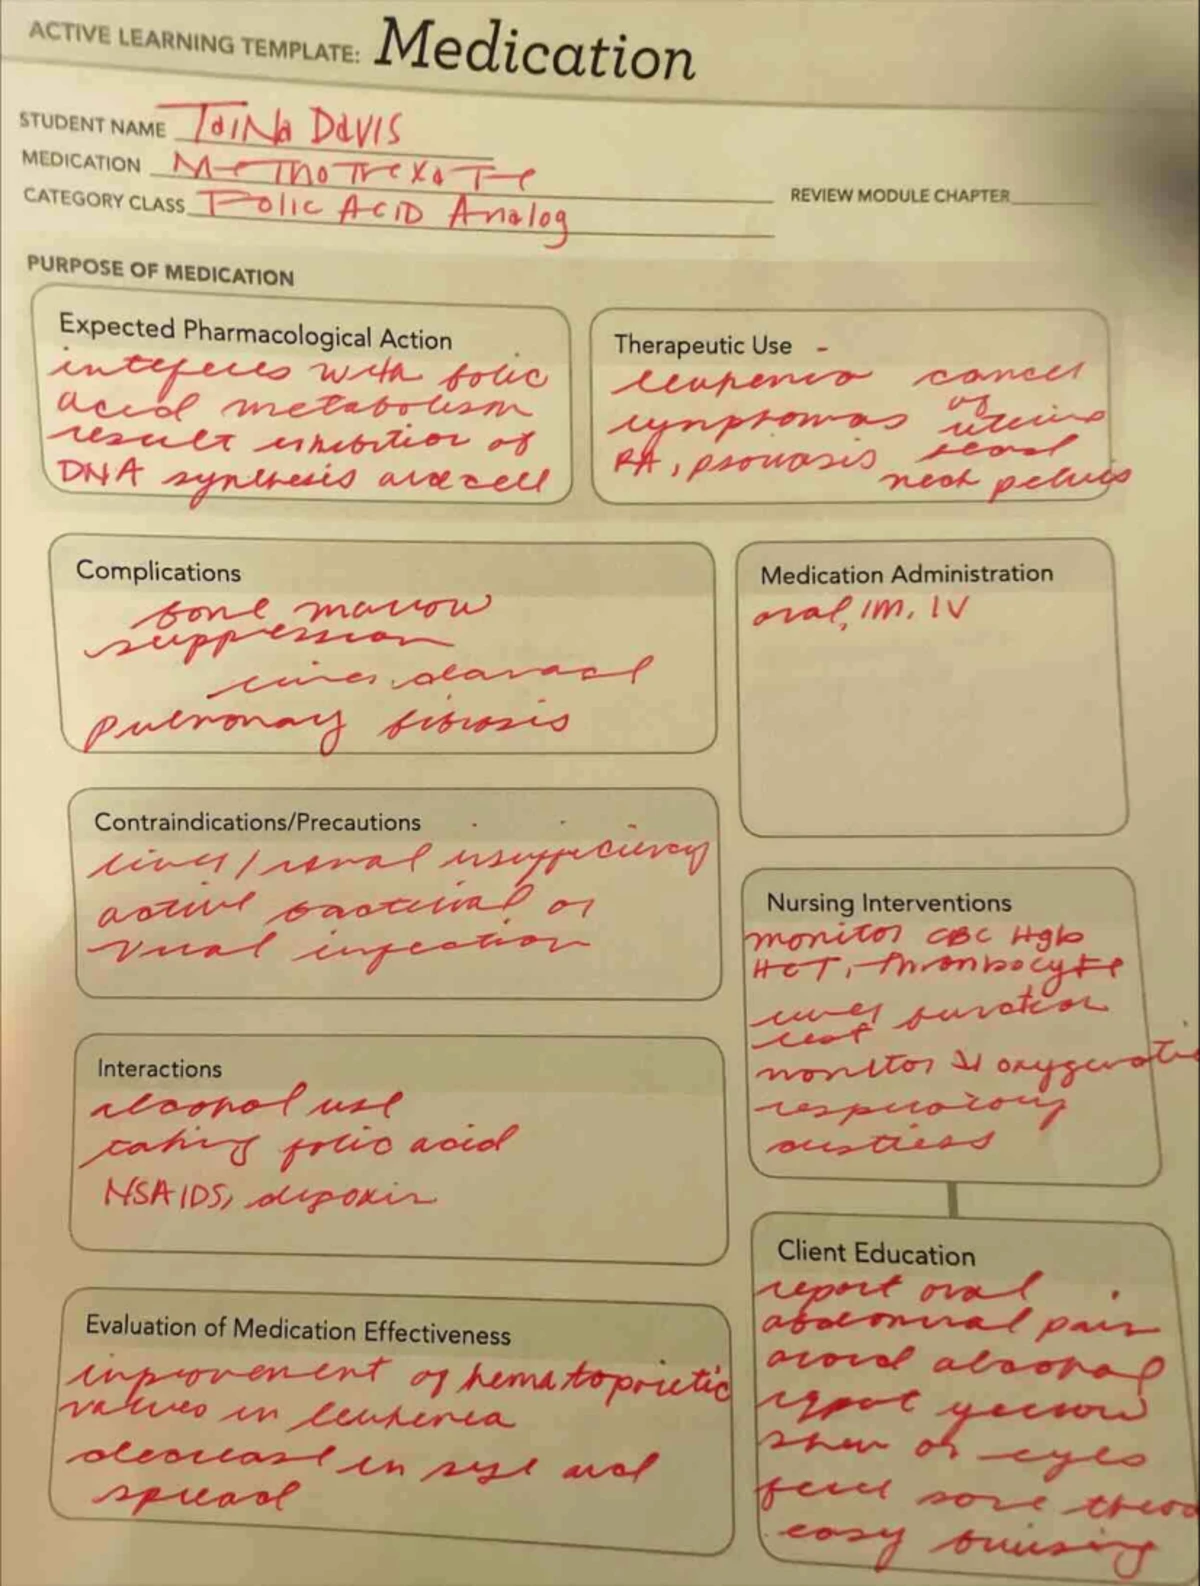 ACTIVE LEARNING TEMPLATE: Medication
STUDENT NAME TaiNa DavIS
MEDICATION MeThoTrexaTe
CATEGORY CLASS Folic ACID Analog
REVIEW MODULE CHAPTER
PURPOSE OF MEDICATION
Expected Pharmacological Action
intefeces with folic
acid metabolism
result inhibition of
DNA synthesis and cell
Therapeutic Use -
leukemia cancer
lymphomas of uterine
RA, psoriasis
neck pelvis
Complications
bone marrow
suppression
liver damage
pulmonary fibrosis
Medication Administration
oral, IM, IV
Contraindications/Precautions
liver/renal insufficiency
active bacterial or
viral infection
Nursing Interventions
monitor CBC Hgb
HCT, thrombocyte
liver function
test
monitor oxygenati
respiratory
distress
Interactions
alcohol use
taking folic acid
NSAIDS, digoxin
Client Education
report oral
abdominal pain
avoid alcohol
report yellow
skin or eyes
sore throa
easy bruising
Evaluation of Medication Effectiveness
improvement of hematopoietic
values in leukemia
decrease in size and
spread